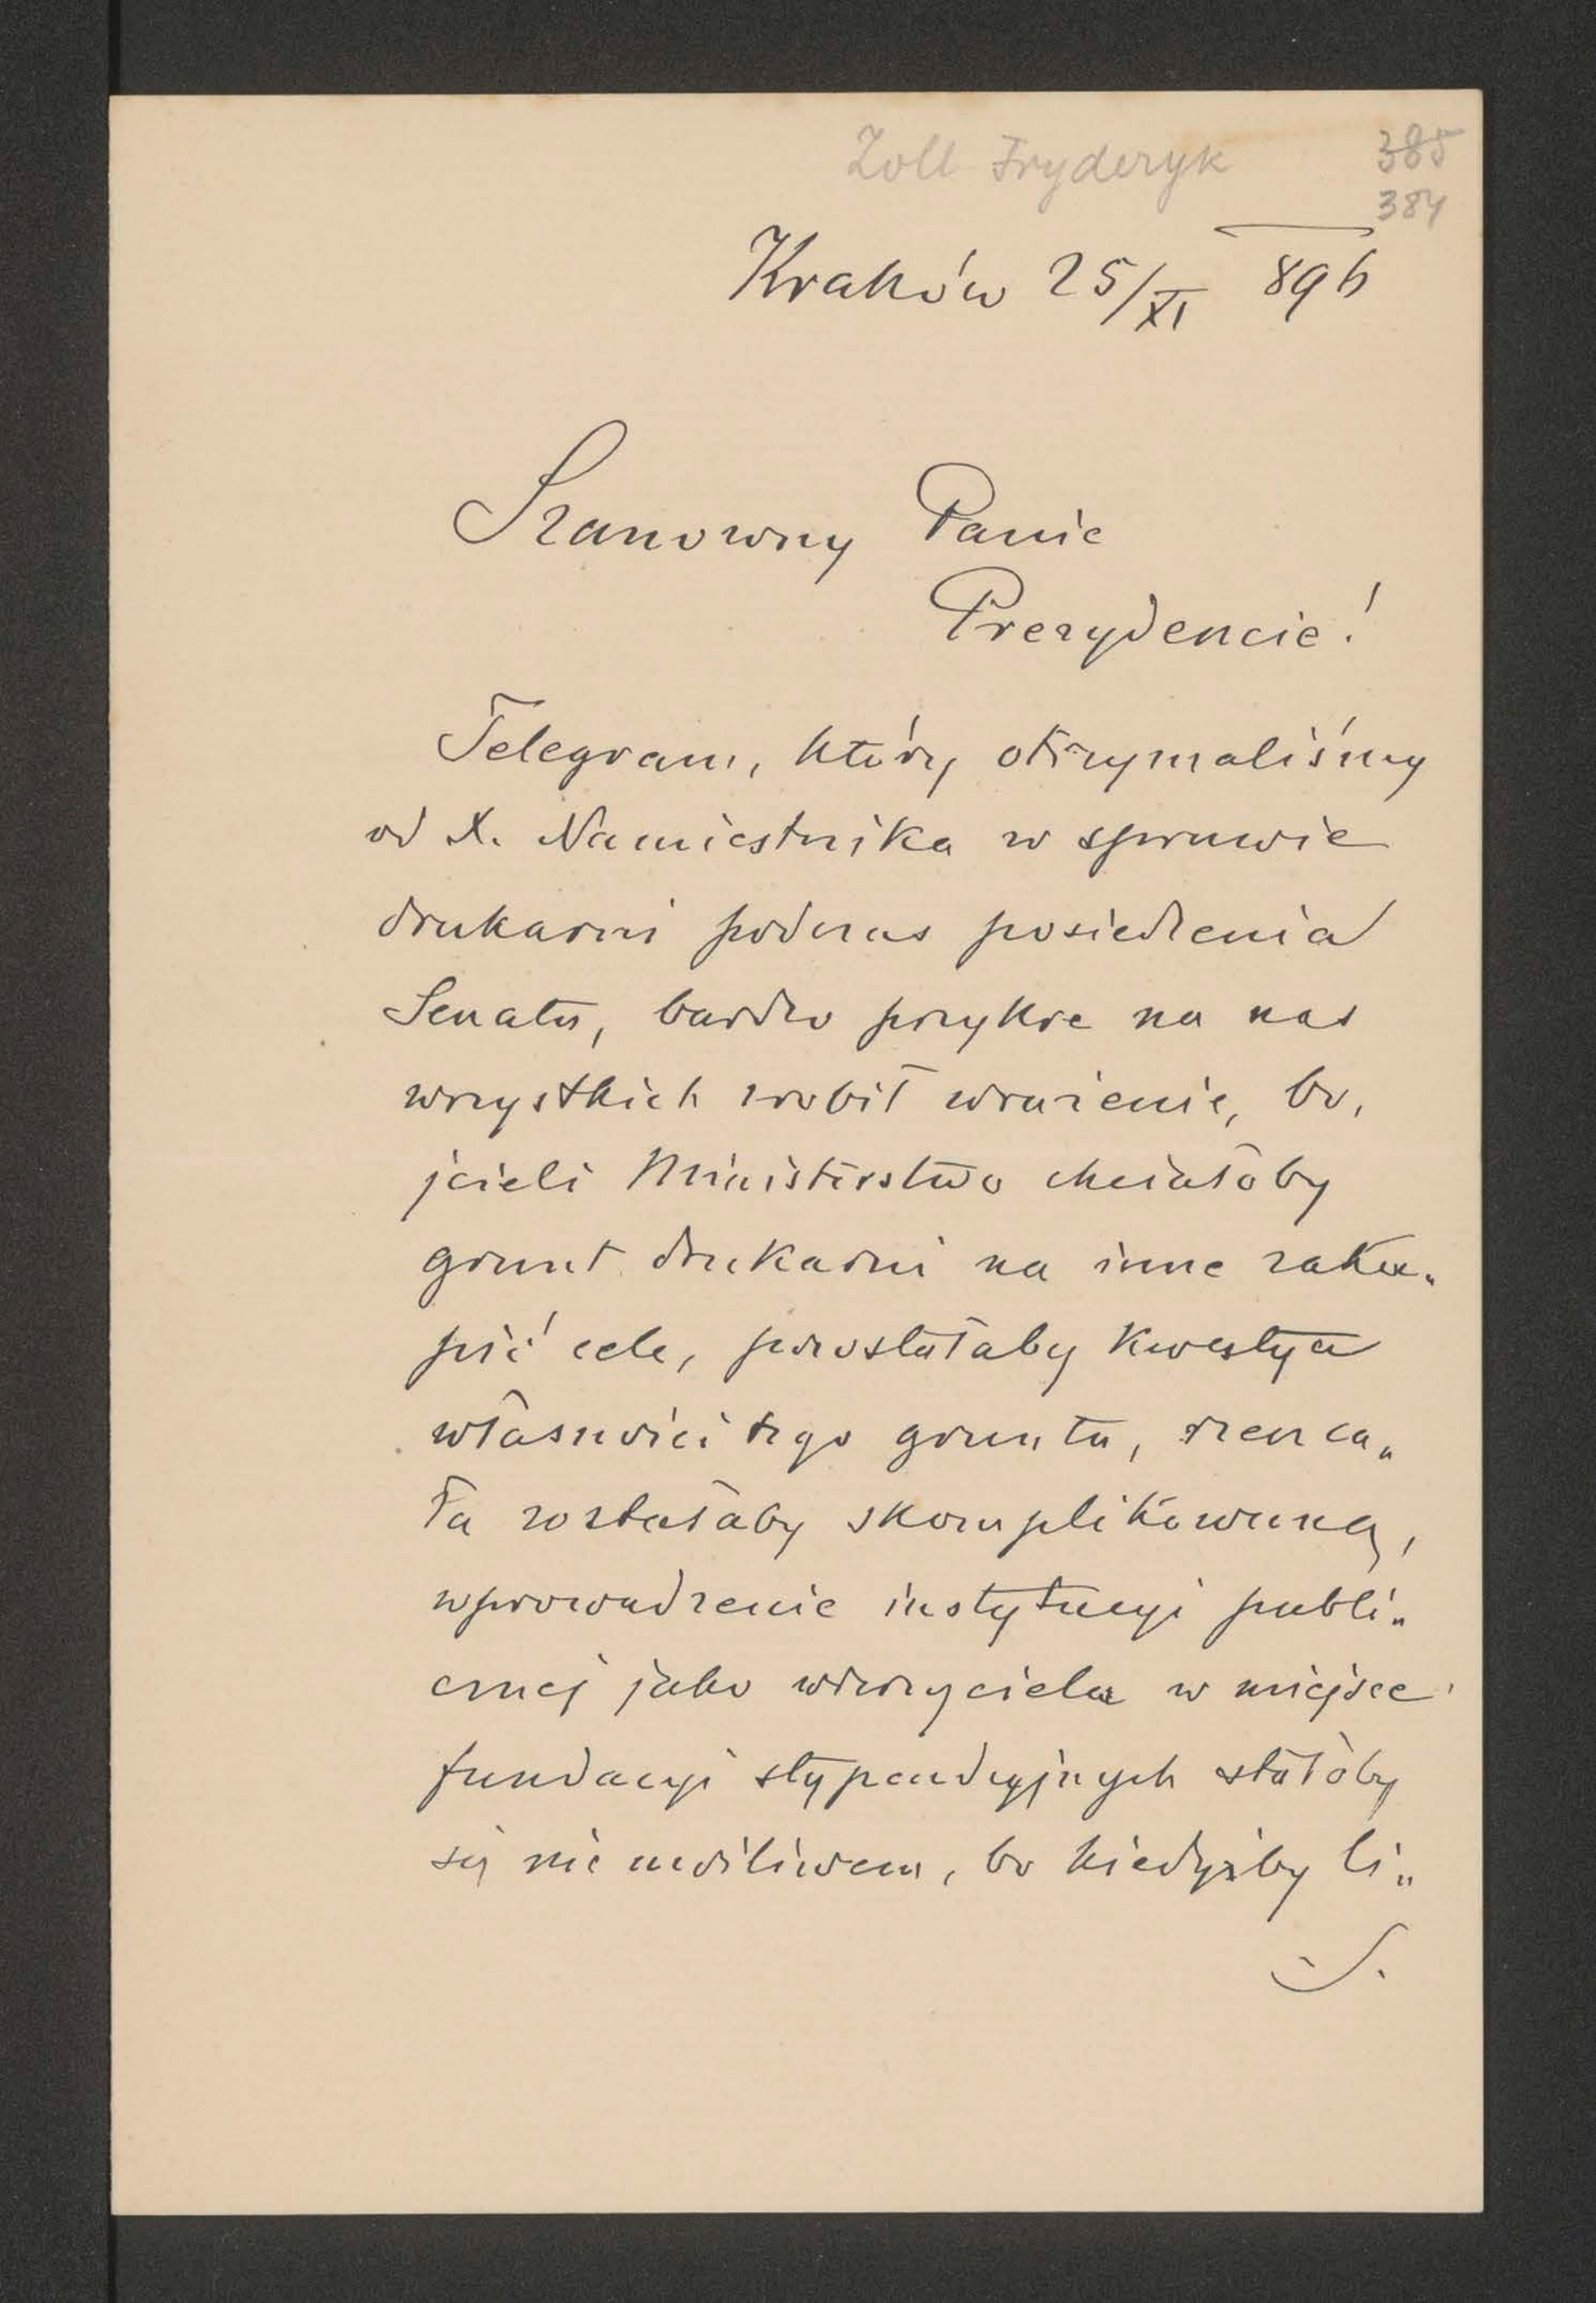 Zoll Fryderyk
385
384
Kraków 25/XI 896
Szanowny Panie
Prezydencie!
Telegram, który otrzymaliśmy
od X. Namiestnika w sprawie
drukarni podczas posiedzenia
Senatu, bardzo przykre na nas
wszystkich zrobił wrażenie, bo,
jeżeli Ministerstwo chciałoby
grunt drukarni na inne zaku„
pić cele, powstałaby kwestya
własności tego gruntu,
ła zostałaby skomplikowaną,
wprowadzenie instytucyi publi„
cznej jako wierzyciela w miejsce
fundacyi stypendyjnych stałoby
się nie możliwem, bo kiedyżby li„
S.